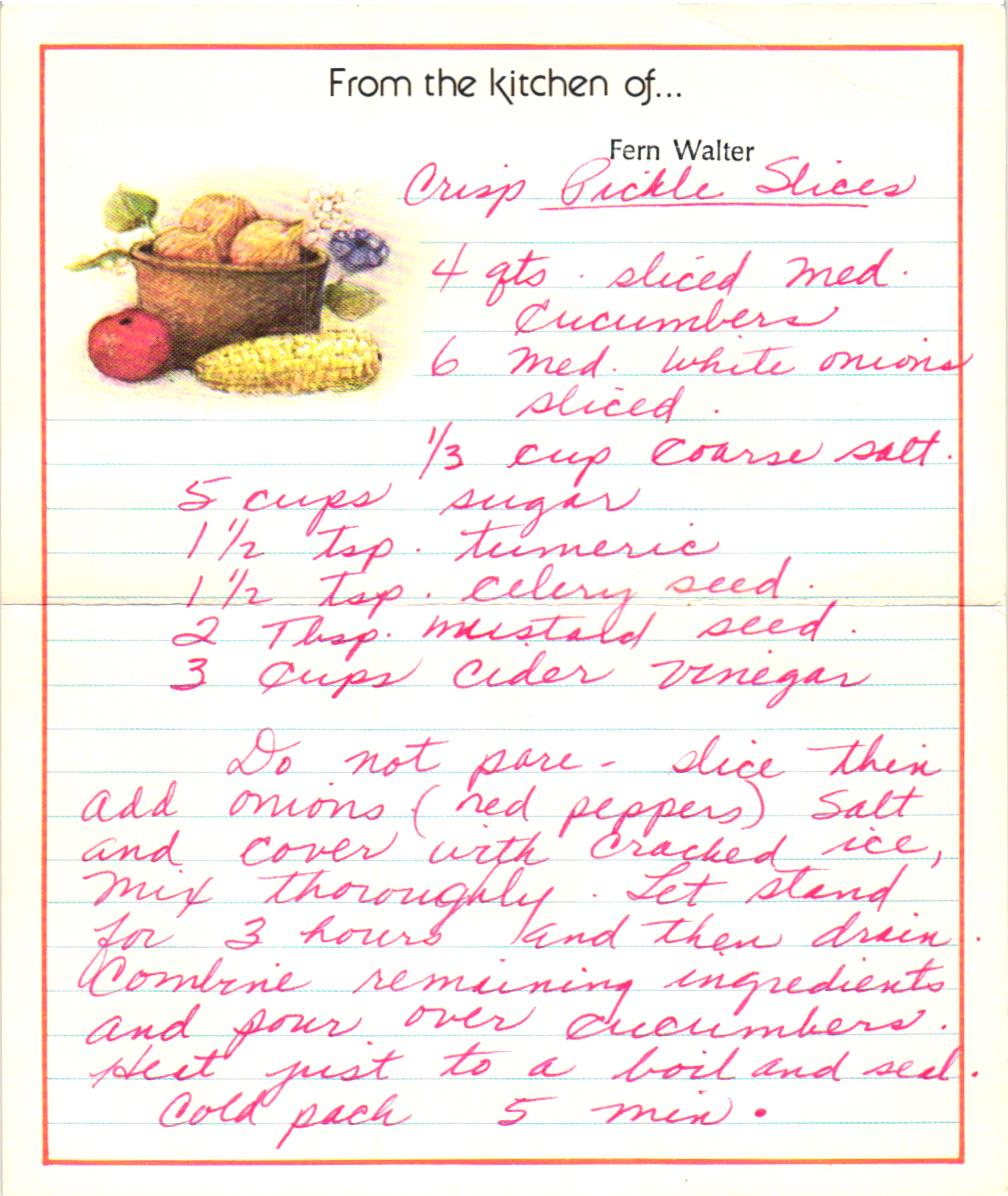 From the kitchen of...
Fern Walter
Crisp Pickle Slices
4 qts. sliced med.
cucumbers
6 med. white onions
sliced.
1/3 cup coarse salt.
5 cups sugar
1 1/2 tsp. tumeric
1 1/2 tsp. celery seed.
2 Tbsp. mustard seed.
3 cups cider vinegar
Do not pare - slice thin
add onions (red peppers) salt
and cover with cracked ice,
mix thoroughly. Let stand
for 3 hours and then drain.
Combine remaining ingredients
and pour over cucumbers.
Heat just to a boil and seal.
Cold pack 5 min.